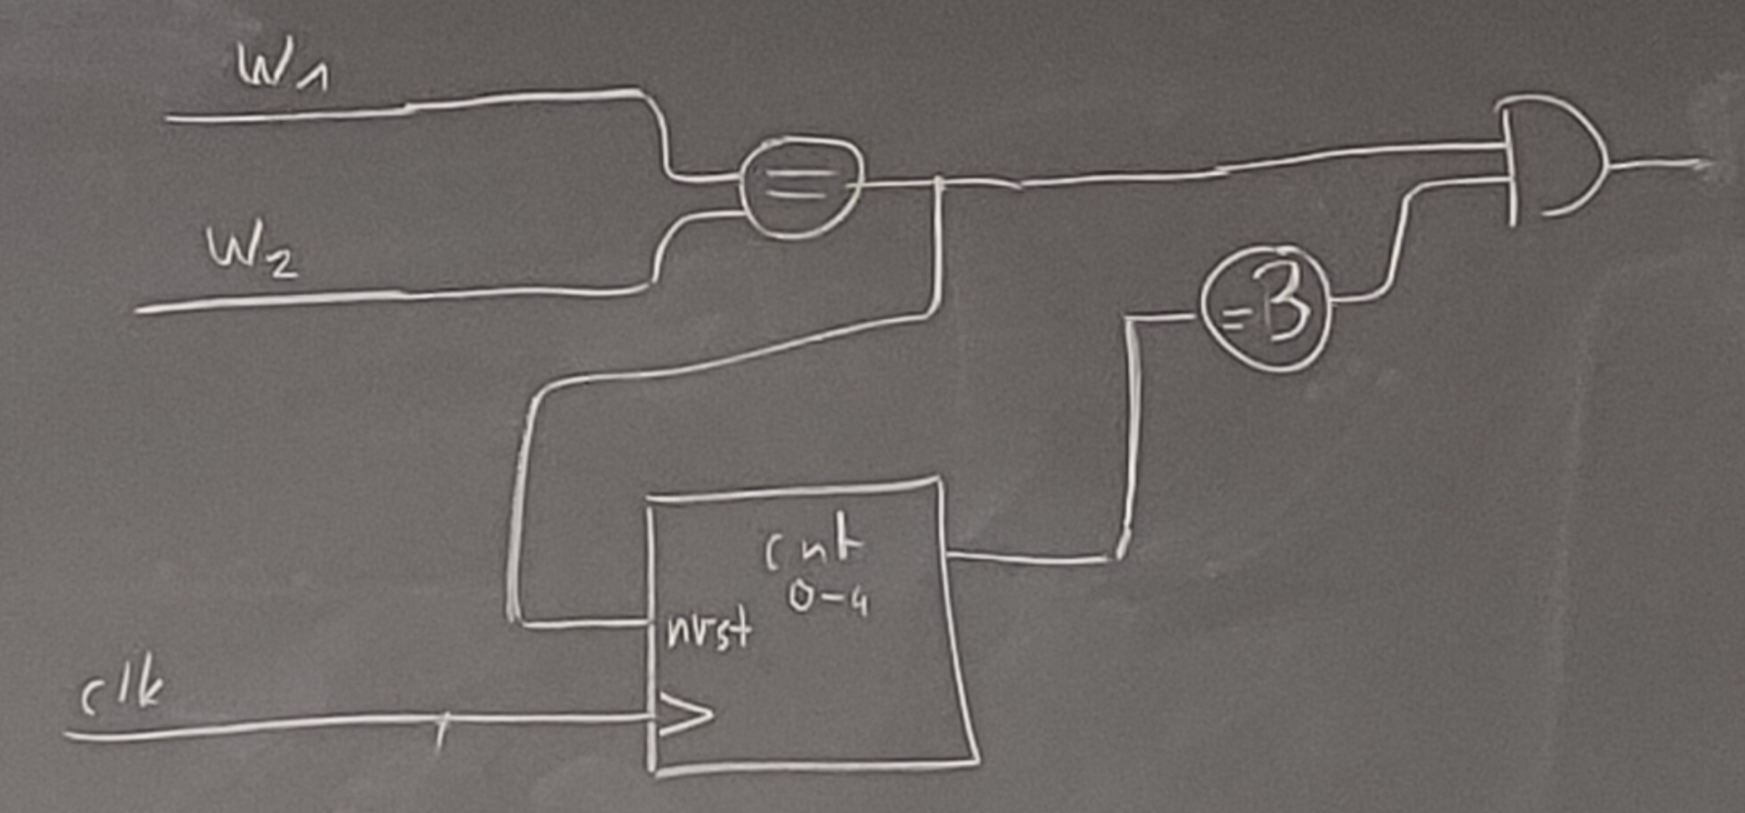 W1
W2
=
=3
cnt
0-4
nrst
clk